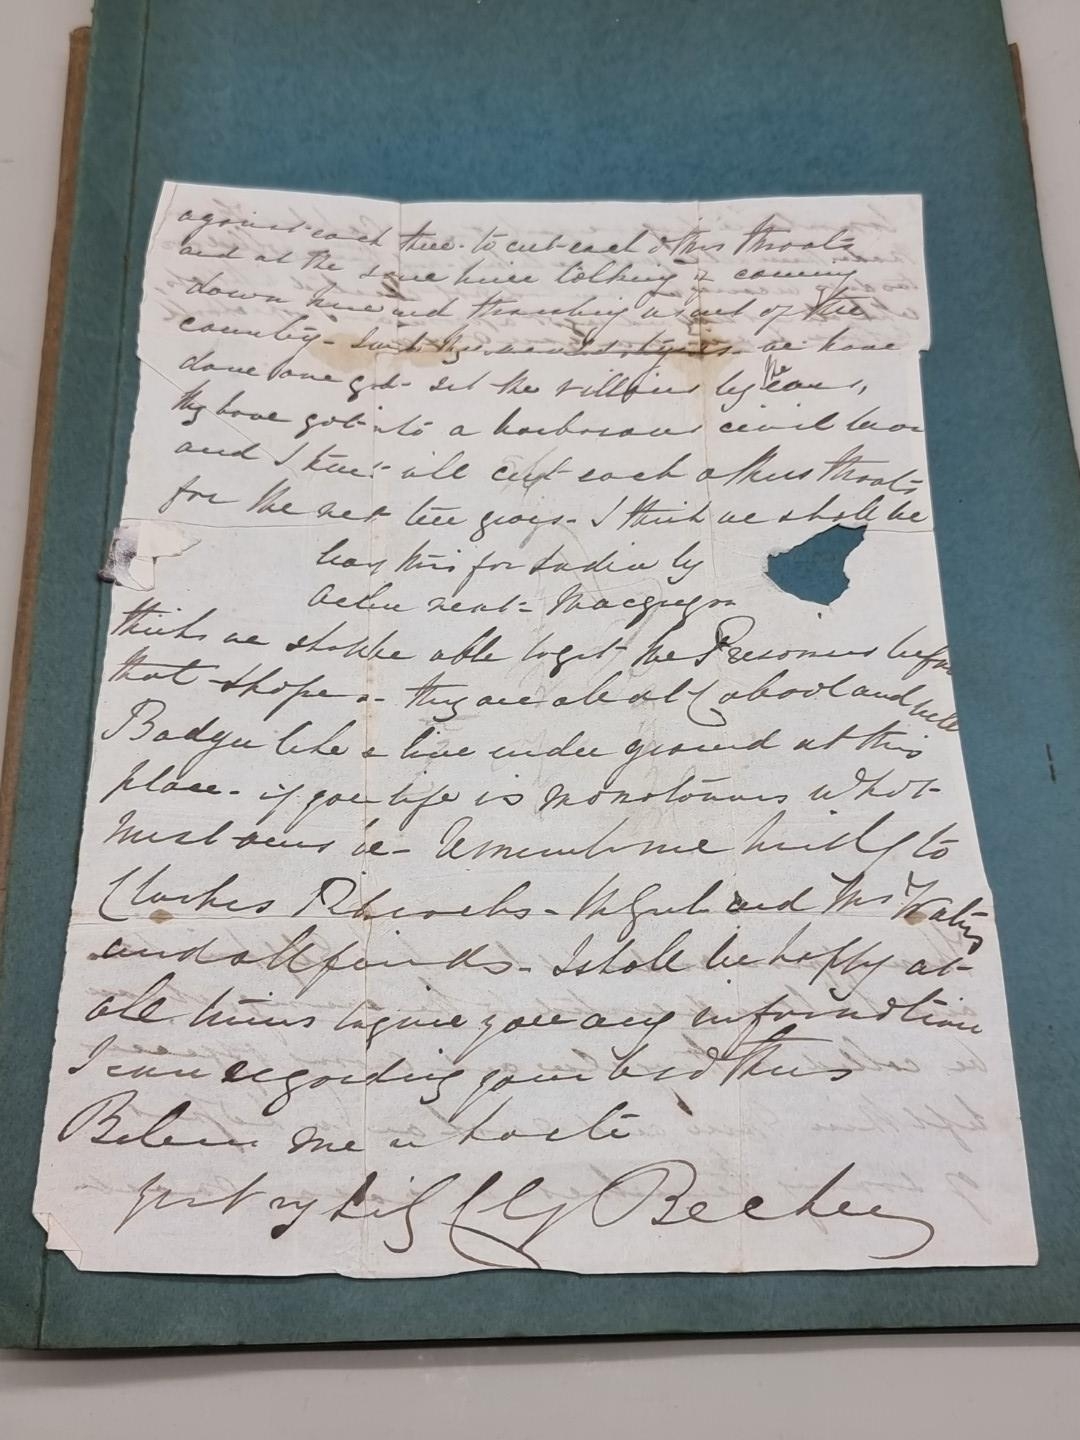 against each three - to cut each others throats
and at the same time talking of coming
down here and thrashing us out of the
country - we have
done one gd - set the villains by the ears,
thy have got into a barbarous civil war
and I trust all cut each others throats
for the next ten years - I think we shall be
this for India by
next - Macgregor
thinks we shall be able to get the Prisoners before
that - I hope so - they are all at Cabool and
Badger like a live under ground at this
place - if your life is monotonous what
must ours be - Remember me kindly to
Clarkes - and Mrs Waters
and all friends - I shall be happy at
all times to give you any information
I can regarding your brothers
Believe me in haste
yrs very Becher